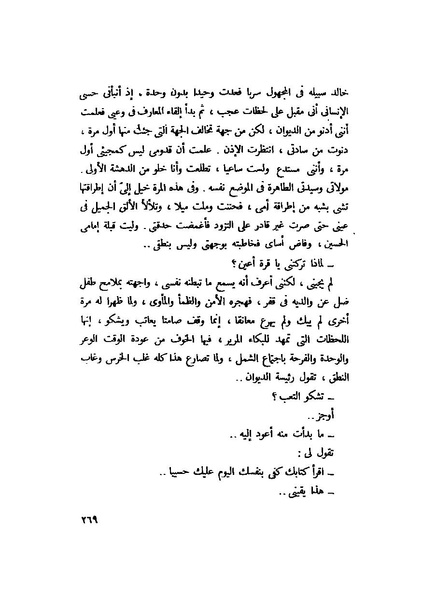 خالد سبيله فى المجهول سربا فعدت وحيدا بدون وحدة ، إذ أنبأنى حسى
الإنسانى أنى مقبل على لحظات عجب ، ثم بدأ إلقاء المعارف فى وعيى فعلمت
أننى أدنو من الديوان ، لكن من جهة تخالف الجهة التى جئت منها أول مرة ،
دنوت من سادتى ، انتظرت الإذن . علمت أن قدومى ليس كمجيئى أول
مرة ، وأننى مستدع ولست ساعيا ، تطلعت وأنا خلو من الدهشة الأولى .
مولاتى وسيدتى الطاهرة فى الموضع نفسه . وفى هذه المرة خيل إلىّ أن إطراقتها
تشى بشبه من إطراقة أمى ، فحننت وملت ميلا ، وتلألأ الألق الجميل فى
عينى حتى صرت غير قادر على التزود فأغمضت حدقتى . وليت قبلة إمامى
الحسين ، وفاض أساى فخاطبته بوجهتى وليس بنطق ..
ــ لماذا تركتنى يا قرة أعين ؟
لم يجبنى ، لكننى أعرف أنه يسمع ما تبطنه نفسى ، واجهته بملامح طفل
ضل عن والديه فى قفر ، فهجره الأمن والظمأ والمأوى ، ولما ظهرا له مرة
أخرى لم يبك ولم يهرع معانقا ، إنما وقف صامتا يعاتب ويشكو ، إنها
اللحظات التى تمهد للبكاء المرير ، فيها الخوف من عودة الوقت الوعر
والوحدة والفرحة باجتماع الشمل ، ولما تصارع هذا كله غلب الخرس وغاب
النطق ، تقول رئيسة الديوان ..
ــ تشكو التعب ؟
أوجز ..
ــ ما بدأت منه أعود إليه ..
تقول لى :
ــ اقرأ كتابك كفى بنفسك اليوم عليك حسيبا ..
ــ هذا يقينى ..
٢٦٩